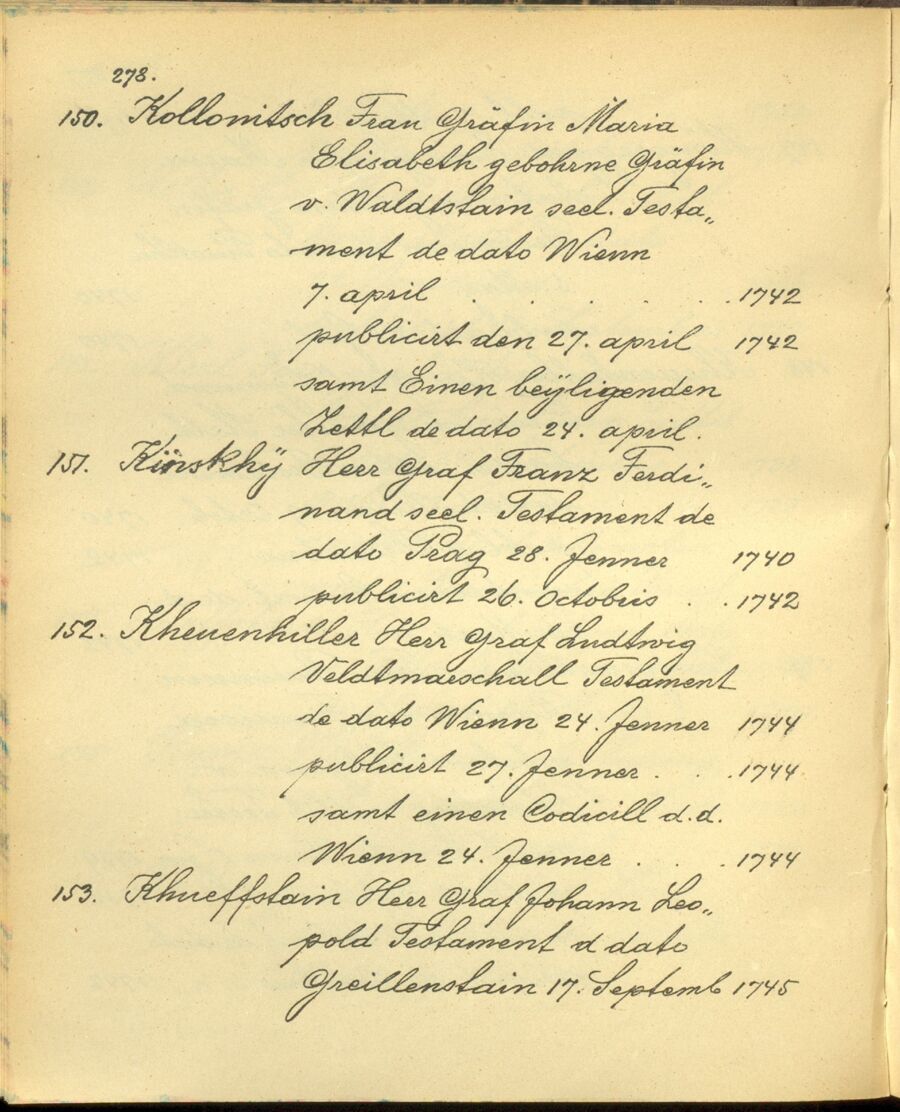 278.
150. Kollonitsch Frau Gräfin Maria
Elisabeth gebohrne Gräfin
v. Waldtstain seel. Testa„
ment de dato Wienn
7. april . . . . . 1742
publicirt den 27. april 1742
samt Einen beÿligenden
Zettl de dato 24. april.
151. Kinskhÿ Herr Graf Franz Ferdi„
nand seel. Testament de
dato Prag 28. Jenner 1740
publicirt 26. Octobris . . 1742
152. Kheuenhiller Herr Graf Ludtwig
Veldtmarschall Testament
de dato Wienn 24. Jenner 1744
publicirt 27. Jenner . . . 1744
samt einen Codicill d.d.
Wienn 24. Jenner . . . 1744
153. Khueffstain Herr Graf Johann Leo„
pold Testament d dato
Greillenstain 17. Septemb 1745